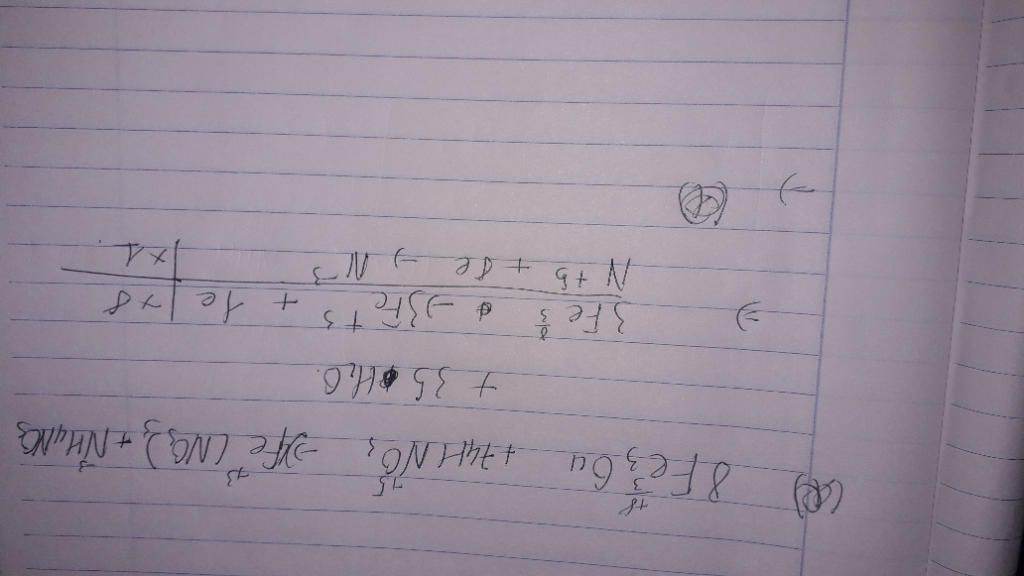 8Fe₃O₄ + 74HNO₃ → Fe(NO₃)₃ + NH₄NO₃
+ 35 H₂O
⇒ 3Fe +8/3 → 3Fe+3 + 1e | ×8
N+5 + 8e → N-3 | ×1
→